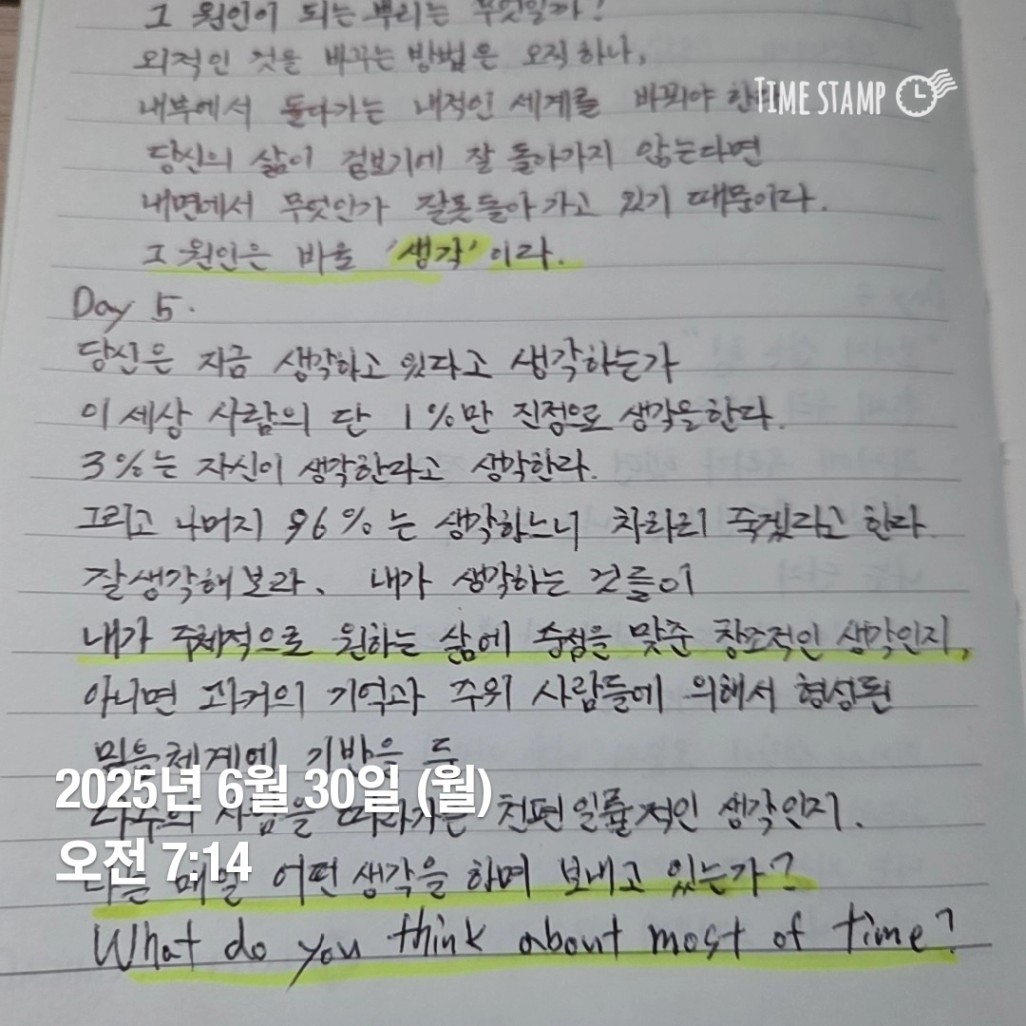 그 원인이 되는 뿌리는 무엇일까?
외적인 것을 바꾸는 방법은 오직 하나,
내부에서 돌아가는 내적인 세계를 바꿔야 한다
TIME STAMP
당신의 삶이 겉보기에 잘 돌아가지 않는다면
내면에서 무엇인가 잘못 돌아 가고 있기 때문이다.
그 원인은 바로 '생각' 이다.
Day 5.
당신은 지금 생각하고 있다고 생각하는가
이 세상 사람의 단 1%만 진정으로 생각을 한다.
3%는 자신이 생각한다고 생각한다.
그리고 나머지 96%는 생각하느니 차라리 죽겠다고 한다.
잘 생각해 보라. 내가 생각하는 것들이
내가 주체적으로 원하는 삶에 승점을 맞춘 창조적인 생각인지,
아니면 과거의 기억과 주위 사람들에 의해서 형성된
믿음체계에 기반을 둔
2025년 6월 30일 (월)
다수의 사람을 따라가는 천편일률적인 생각인지.
오전 7:14
나는 매일 어떤 생각을 하며 보내고 있는가?
What do you think about most of time?